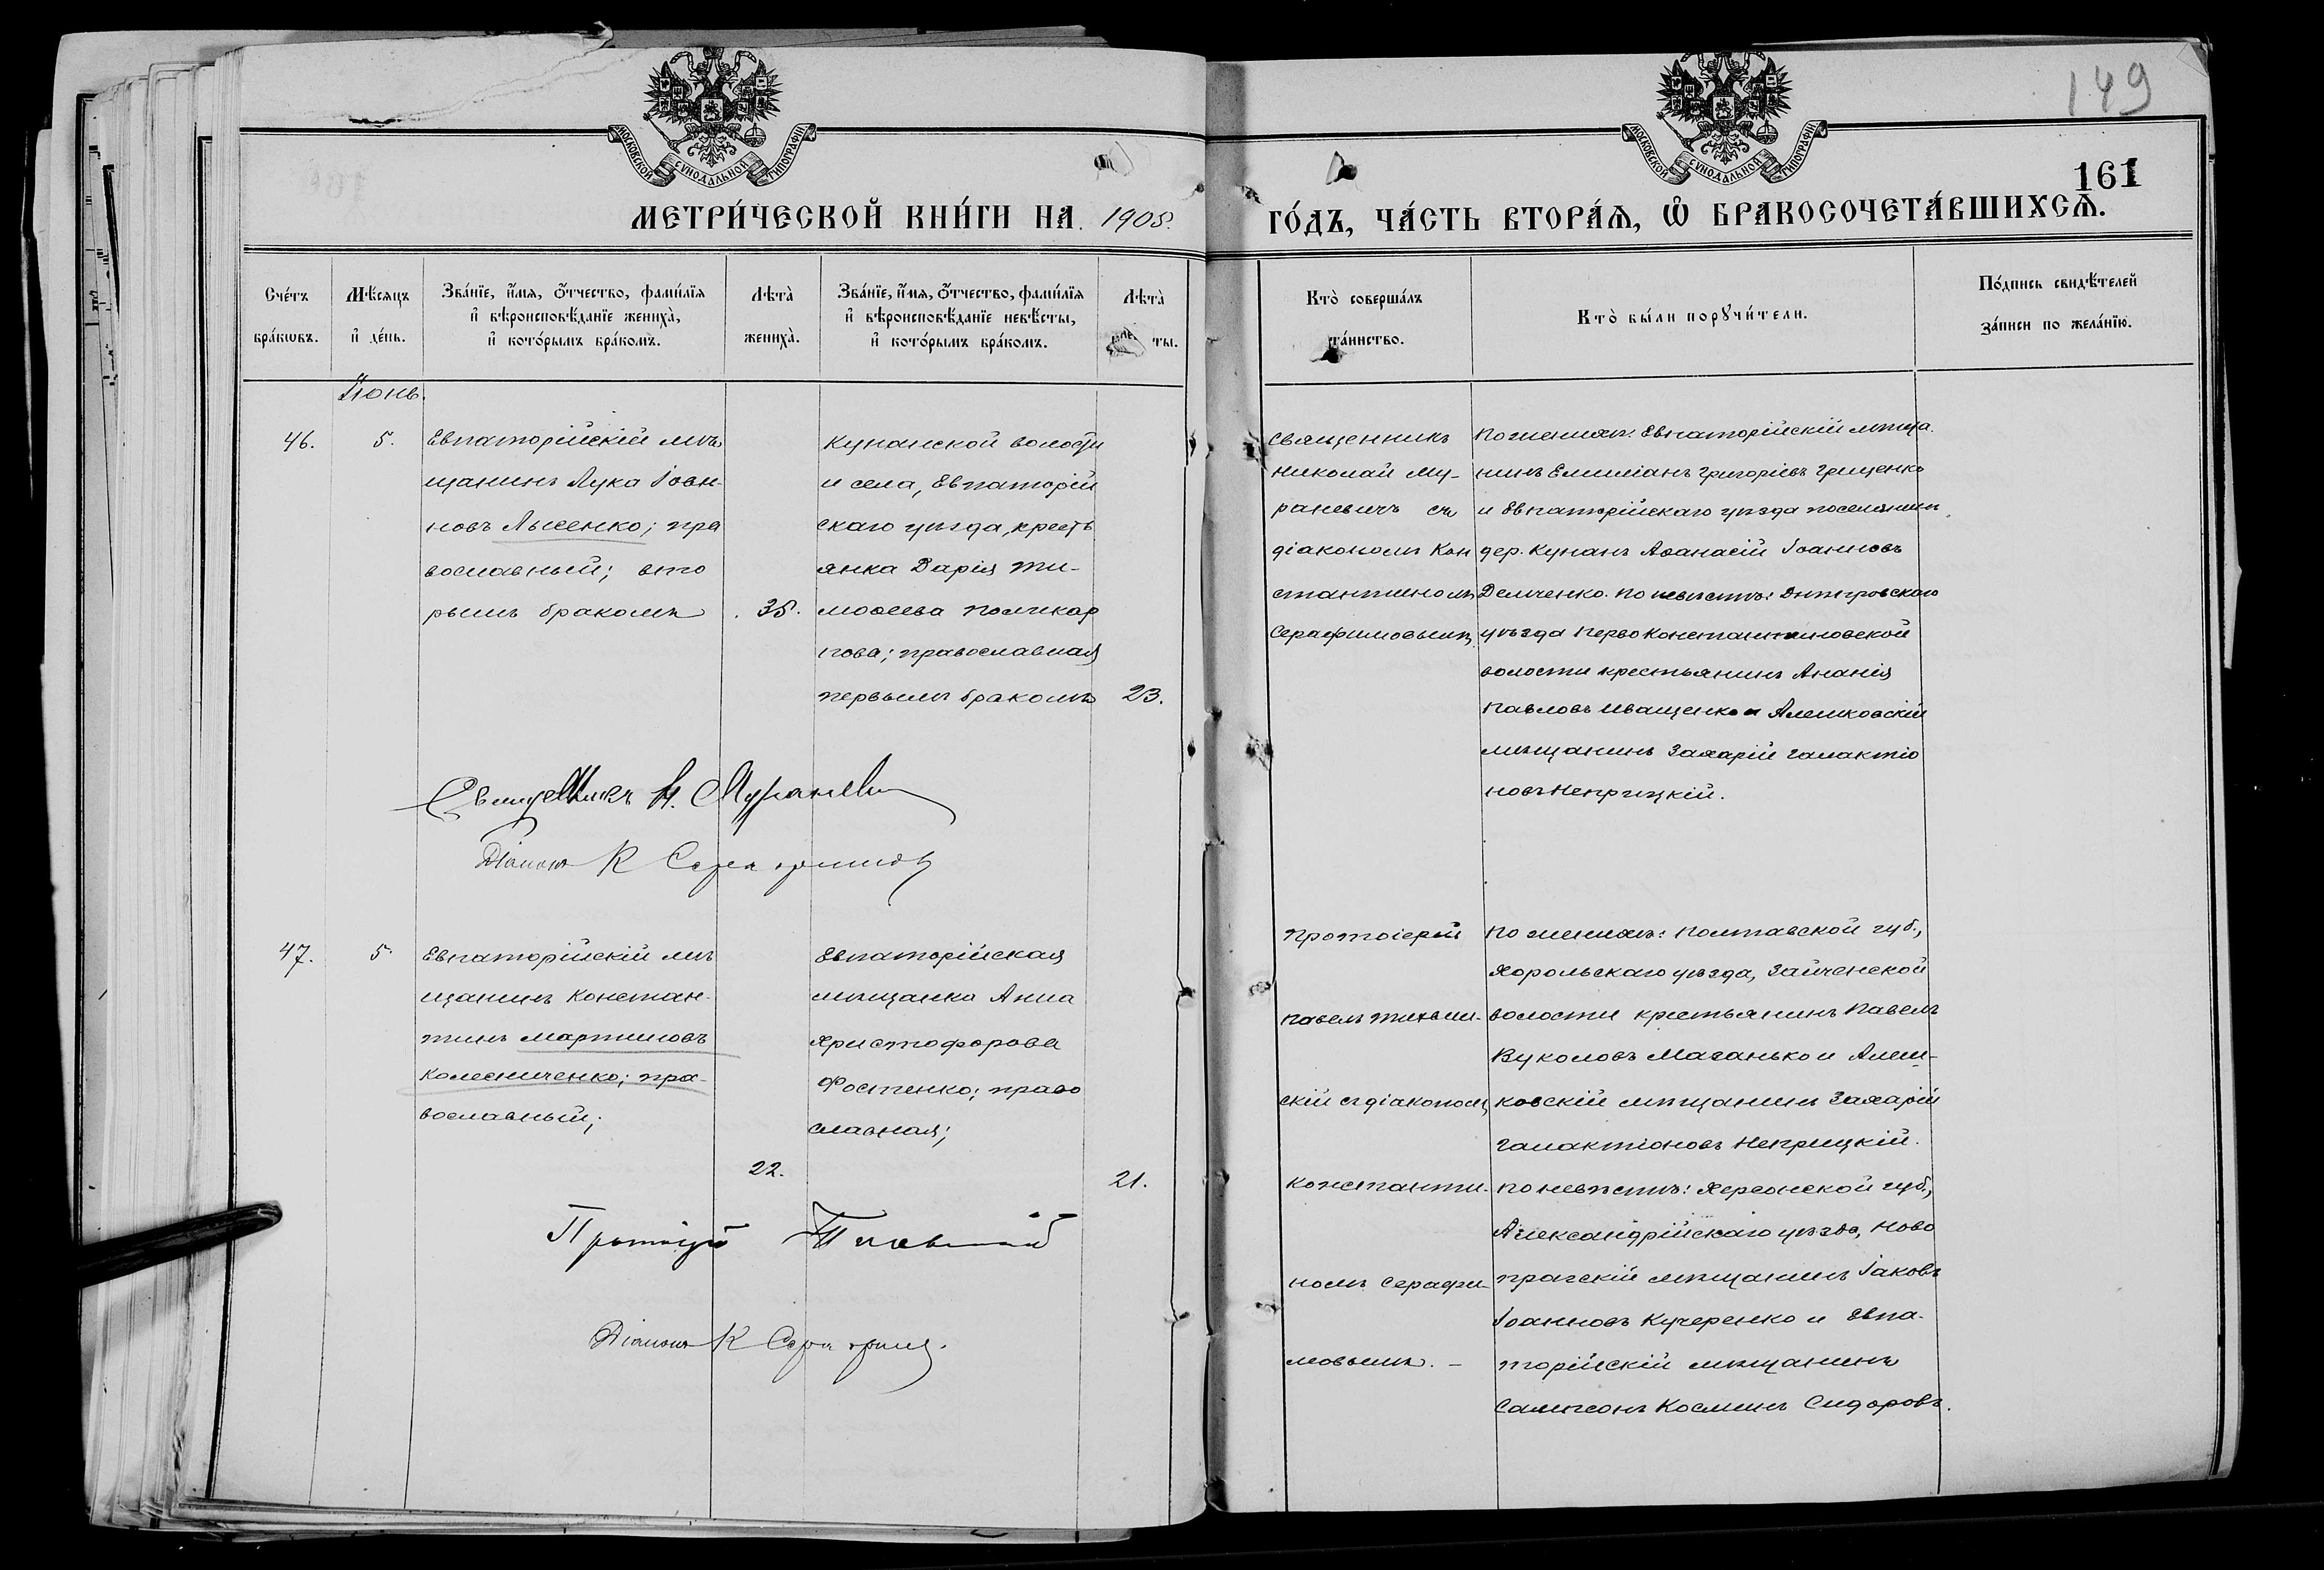 149
161
МОСКОВСКОЙ СѴНОДАЛЬНОЙ ТИПОГРАФІИ
МОСКОВСКОЙ СѴНОДАЛЬНОЙ ТИПОГРАФІИ
МЕТРИ́ЧЕСКОЙ КНИ́ГИ НА 1908.
ГО́ДЪ, ЧА́СТЬ ВТОРА́Ѧ, Ѡ҆ БРАКОСОЧЕТА́ВШИХСѦ.
Сче́тъ бра́кѡвъ.
Мѣ́сяцъ и҆ де́нь.
Зва́нїе, и҆́мѧ, ѻ҆́тчество, фами́лїѧ
и҆ вѣроисповѣ́данїе жениха̀,
и҆ кото́рымъ бра́комъ.
Лѣта̀ жениха̀.
Зва́нїе, и҆́мѧ, ѻ҆́тчество, фами́лїѧ
и҆ вѣроисповѣ́данїе невѣ́сты,
и҆ кото́рымъ бра́комъ.
Лѣта̀
ты.
Кто̀ соверша́лъ
та́инство.
Кто̀ бы́ли порꙋчи́тели.
По́дпись свидѣ́телей
за́писи по жела́нїю.
Іюнь.
46.
5.
Евпаторійскій мѣ
щанинъ Лука Іоан-
новъ Лысенко; пра
вославный; вто
рымъ бракомъ
35.
Кунанской волости
и села, Евпаторій
скаго уѣзда, кресть
янка Дарія Ти-
моѳеева Поликар
пова; православная
первымъ бракомъ
23.
Священникъ
Николай Му-
раневичъ съ
діакономъ Кон
стантиномъ
Серафимовымъ
По женихѣ: Евпаторійскій мѣща-
нинъ Емиліанъ Григоріевъ Грищенко
и Евпаторійскаго уѣзда поселянинъ
дер. Кунанъ Аѳанасій Іоанновъ
Демченко. По невѣстѣ: Днѣпровскаго
уѣзда Первоконстантиновской
волости крестьянинъ Ананія
Павловъ Иващенко и Алешковскій
мѣщанинъ Захарій Галактіо
новъ Неприцкій.
Священникъ Н. Мураневич
Діаконъ К Серафимовъ
47.
5.
Евпаторійскій мѣ
щанинъ Констан-
тинъ Мартиновъ
Колесниченко; пра-
вославный;
22.
Евпаторійская
мѣщанка Анна
Христофорова
Фостенко; право
славная;
21.
Протоіерей
Павелъ Тихвин-
скій съ діакономъ
Константи-
номъ Серафи-
мовымъ. –
По женихѣ: Полтавской губ.,
Хорольскаго уѣзда, Зайченской
волости крестьянинъ Павелъ
Вуколовъ Маганько и Алеш-
ковскій мѣщанинъ Захарій
Галактіоновъ Неприцкій.
По невѣстѣ: Херсонской губ.,
Александрійскаго уѣзда, Ново
прагскій мѣщанинъ Іаковъ
Іоанновъ Кучеренко и Евпа-
торійскій мѣщанинъ
Сампсонъ Косминъ Сидоровъ.
Протоіерей
Діаконъ К Серафим